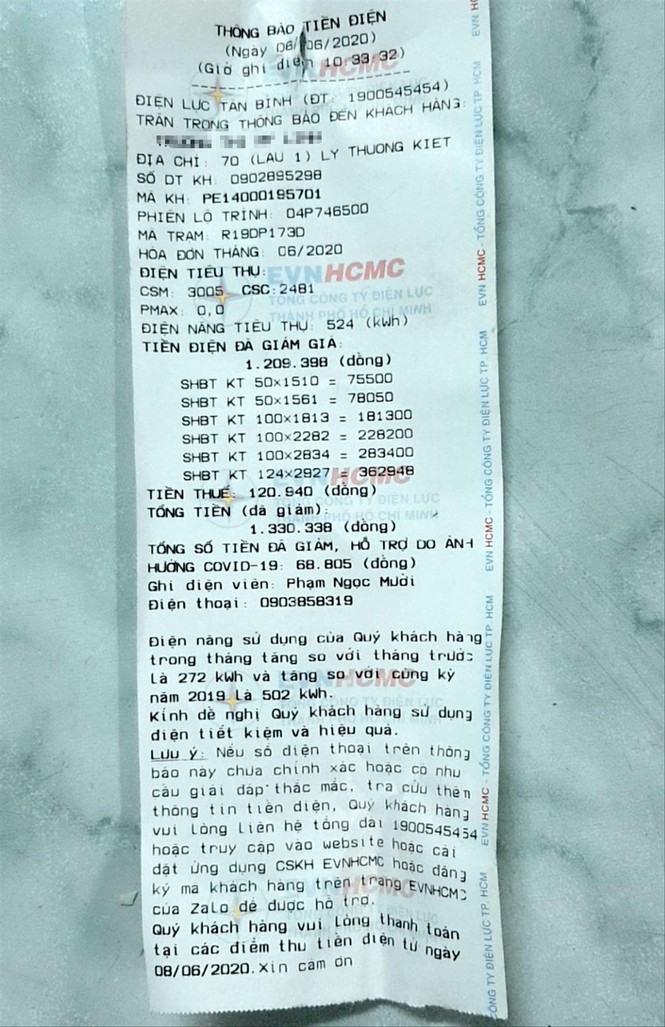 THÔNG BÁO TIỀN ĐIỆN
(Ngày 06/06/2020)
(Giờ ghi điện 10:33:32)
ĐIỆN LỰC TÂN BÌNH (ĐT: 1900545454)
TRÂN TRỌNG THÔNG BÁO ĐẾN KHÁCH HÀNG:
ĐỊA CHỈ: 70 (LẦU 1) LÝ THƯỜNG KIỆT
SỐ ĐT KH: 0902895298
MÃ KH: PE14000195701
PHIÊN LỘ TRÌNH: 04P746500
MÃ TRẠM: R19DP173D
HÓA ĐƠN THÁNG: 06/2020
ĐIỆN TIÊU THỤ:
CSM: 3005 CSC:2481
PMAX: 0,0
ĐIỆN NĂNG TIÊU THỤ: 524 (kWh)
TIỀN ĐIỆN ĐÃ GIẢM GIÁ:
1.209.398 (đồng)
SHBT KT 50×1510 = 75500
SHBT KT 50×1561 = 78050
SHBT KT 100×1813 = 181300
SHBT KT 100×2282 = 228200
SHBT KT 100×2834 = 283400
SHBT KT 124×2927 = 362948
TIỀN THUẾ: 120.940 (đồng)
TỔNG TIỀN (đã giảm):
1.330.338 (đồng)
TỔNG SỐ TIỀN ĐÃ GIẢM, HỖ TRỢ DO ẢNH
HƯỞNG COVID-19: 68.805 (đồng)
Ghi điện viên: Phạm Ngọc Mười
Điện thoại: 0903858319
Điện năng sử dụng của Quý khách hàng
trong tháng tăng so với tháng trước
là 272 kWh và tăng so với cùng kỳ
năm 2019 là 502 kWh.
Kính đề nghị Quý khách hàng sử dụng
điện tiết kiệm và hiệu quả.
Lưu ý: Nếu số điện thoại trên thông
báo này chưa chính xác hoặc có nhu
cầu giải đáp thắc mắc, tra cứu thêm
thông tin tiền điện, Quý khách hàng
vui lòng liên hệ tổng đài 1900545454
hoặc truy cập vào website hoặc cài
đặt ứng dụng CSKH EVNHCMC hoặc đăng
ký mã khách hàng trên trang EVNHCMC
của Zalo để được hỗ trợ.
Quý khách hàng vui lòng thanh toán
tại các điểm thu tiền điện từ ngày
08/06/2020.Xin cám ơn
EVNHCMC
TỔNG CÔNG TY ĐIỆN LỰC
THÀNH PHỐ HỒ CHÍ MINH
EVN HCMC - TỔNG CÔNG TY ĐIỆN LỰC TP. HCM